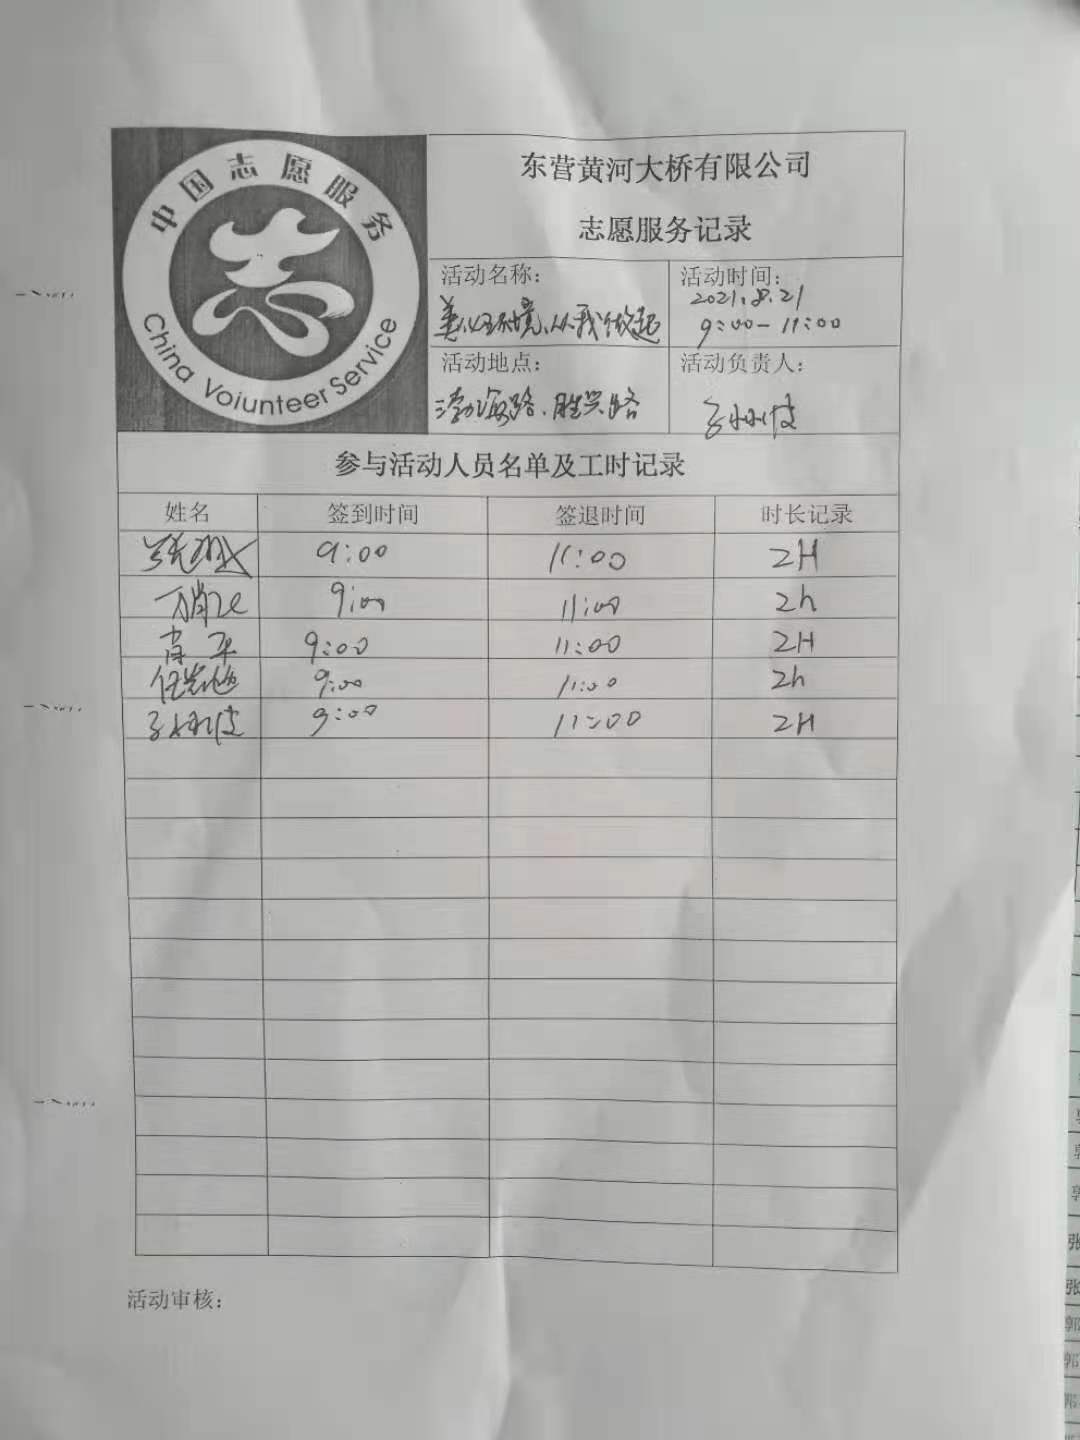 中国志愿服务
志
China VoiunteerService
东营黄河大桥有限公司
志愿服务记录
活动名称：
美化环境、从我做起
活动时间：
2021.8.21
9:00-11:00
活动地点：
渤海路、胜兴路
活动负责人：
参与活动人员名单及工时记录
姓名 签到时间 签退时间 时长记录
9:00 11:00 2H
9:00 11:00 2h
肖平 9:00 11:00 2H
9:00 11:00 2h
9:00 11:00 2H
活动审核：
张
张
郭
郭